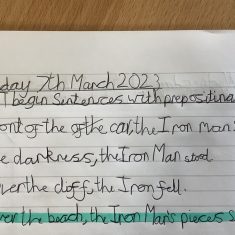 day 7th March 2023
I begin sentences with preposition
ont of the of the car, the Iron man s
e darkness, the Iron Man stood.
ver the cliff, the Iron fell.
ver the beach, the Iron Man's pieces s